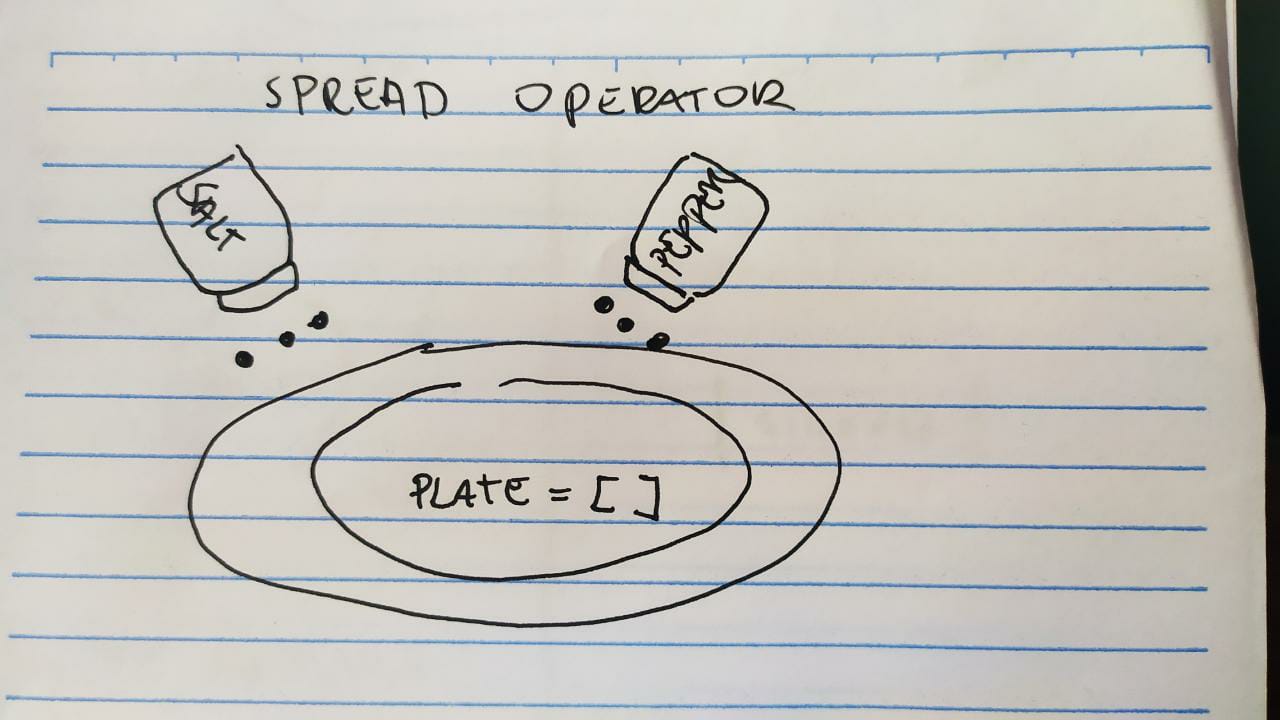 SPREAD OPERATOR
SALT
PEPPER
PLATE = []